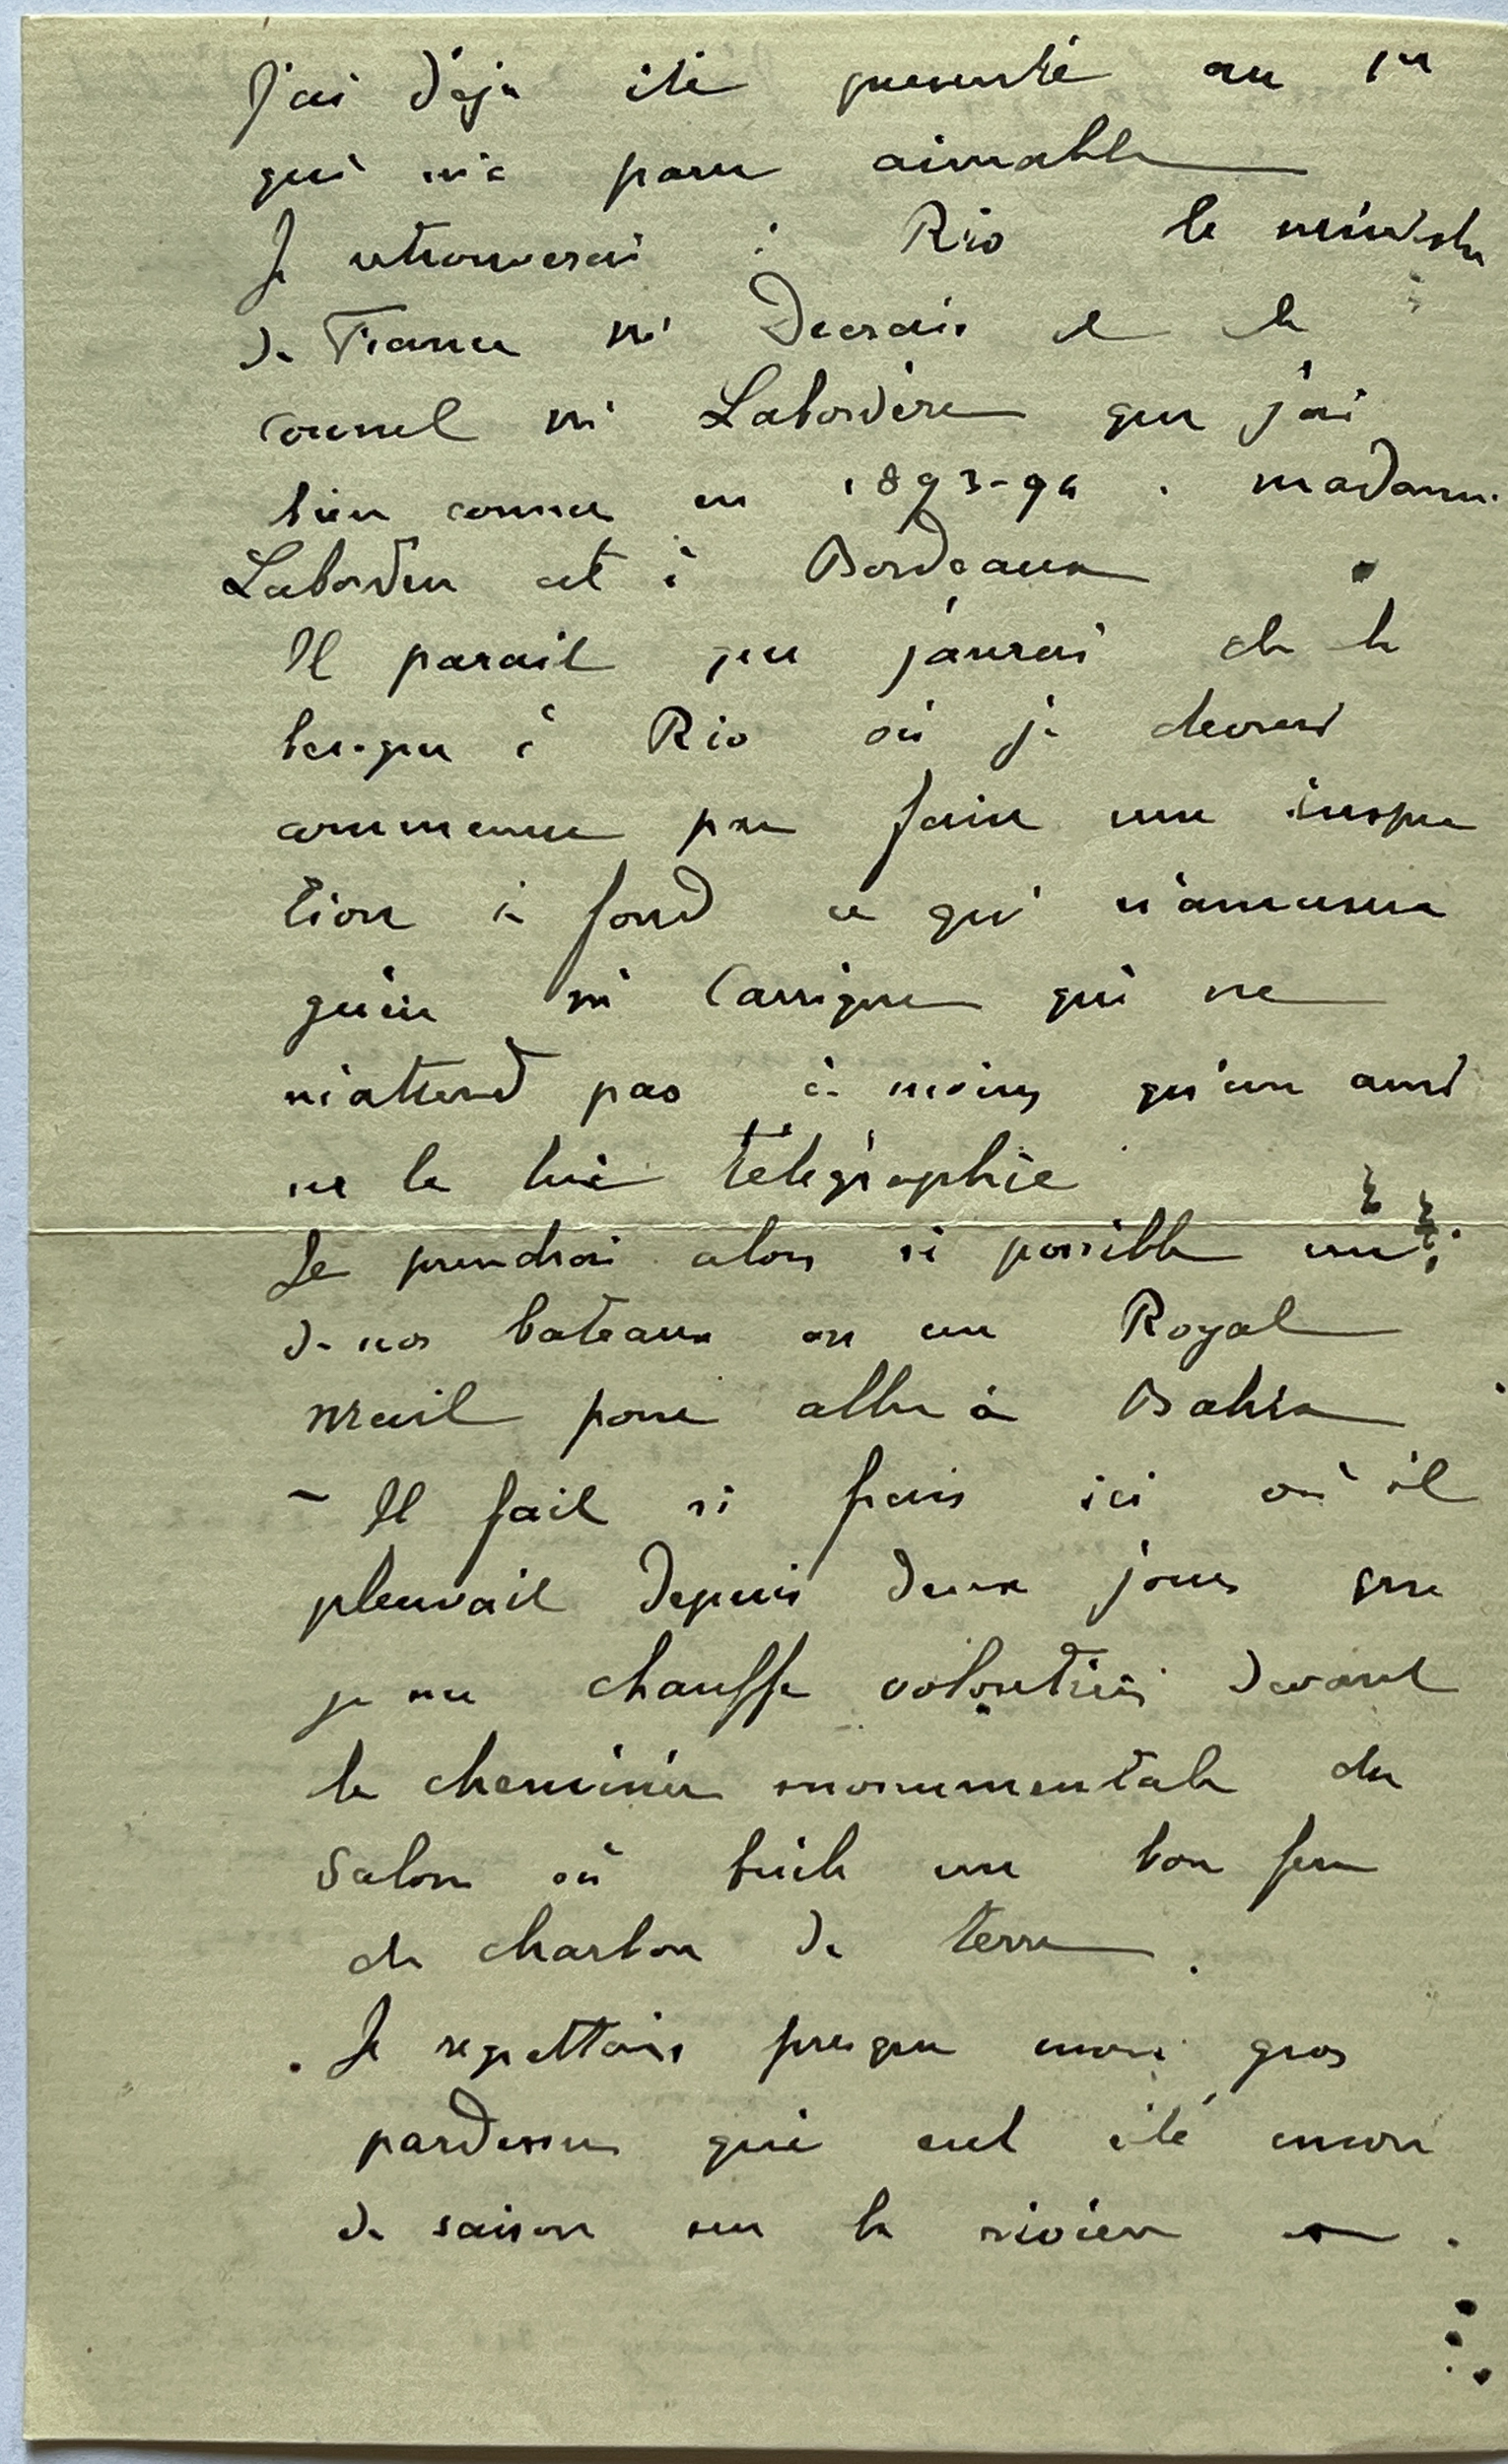 J'ai déjà été presenté au 1er
qui m'a paru aimable
Je retrouverai à Rio le ministre
de France Mr Decrais et le
consul Mr Labordère que j'ai
bien connu en 1893-94. madame
Labordère est à Bordeaux
Il parait que j'aurai de la
besogne à Rio où je devrai
commencer par faire une inspec
tion à fond ce qui n'amusera
guère Mr Carrique qui ne
m'attend pas à moins qu'un ami
ne le lui télégraphie
Je prendrai alors si possible un
de nos bateaux ou un Royal
mail pour aller à Bahia
- Il fait si frais ici où il
pleuvait depuis deux jours que
je me chauffe volontiers devant
la cheminée monumentale du
salon où brûle un bon feu
de charbon de terre.
Je regrettais presque mon gros
pardessus qui eut été encore
de saison sur la rivière